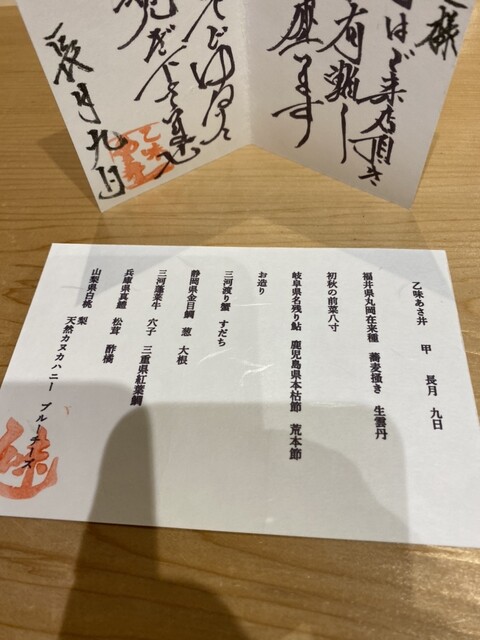 様
はご来店頂き
有難し
座います
でゆるく
下さいませ
長月九日
乙味あさ井　甲　長月　九日
福井県丸岡在来種　蕎麦掻き　生雲丹
初秋の前菜八寸
岐阜県名残り鮎　鹿児島県本枯節　荒本節
お造り
三河渡り蟹　すだち
静岡県金目鯛　葱　大根
三河蓬莱牛　穴子　三重県紅葉鯛
兵庫県真鱧　松茸　酢橘
山梨県白桃　梨
天然カヌカハニー　ブルーチーズ